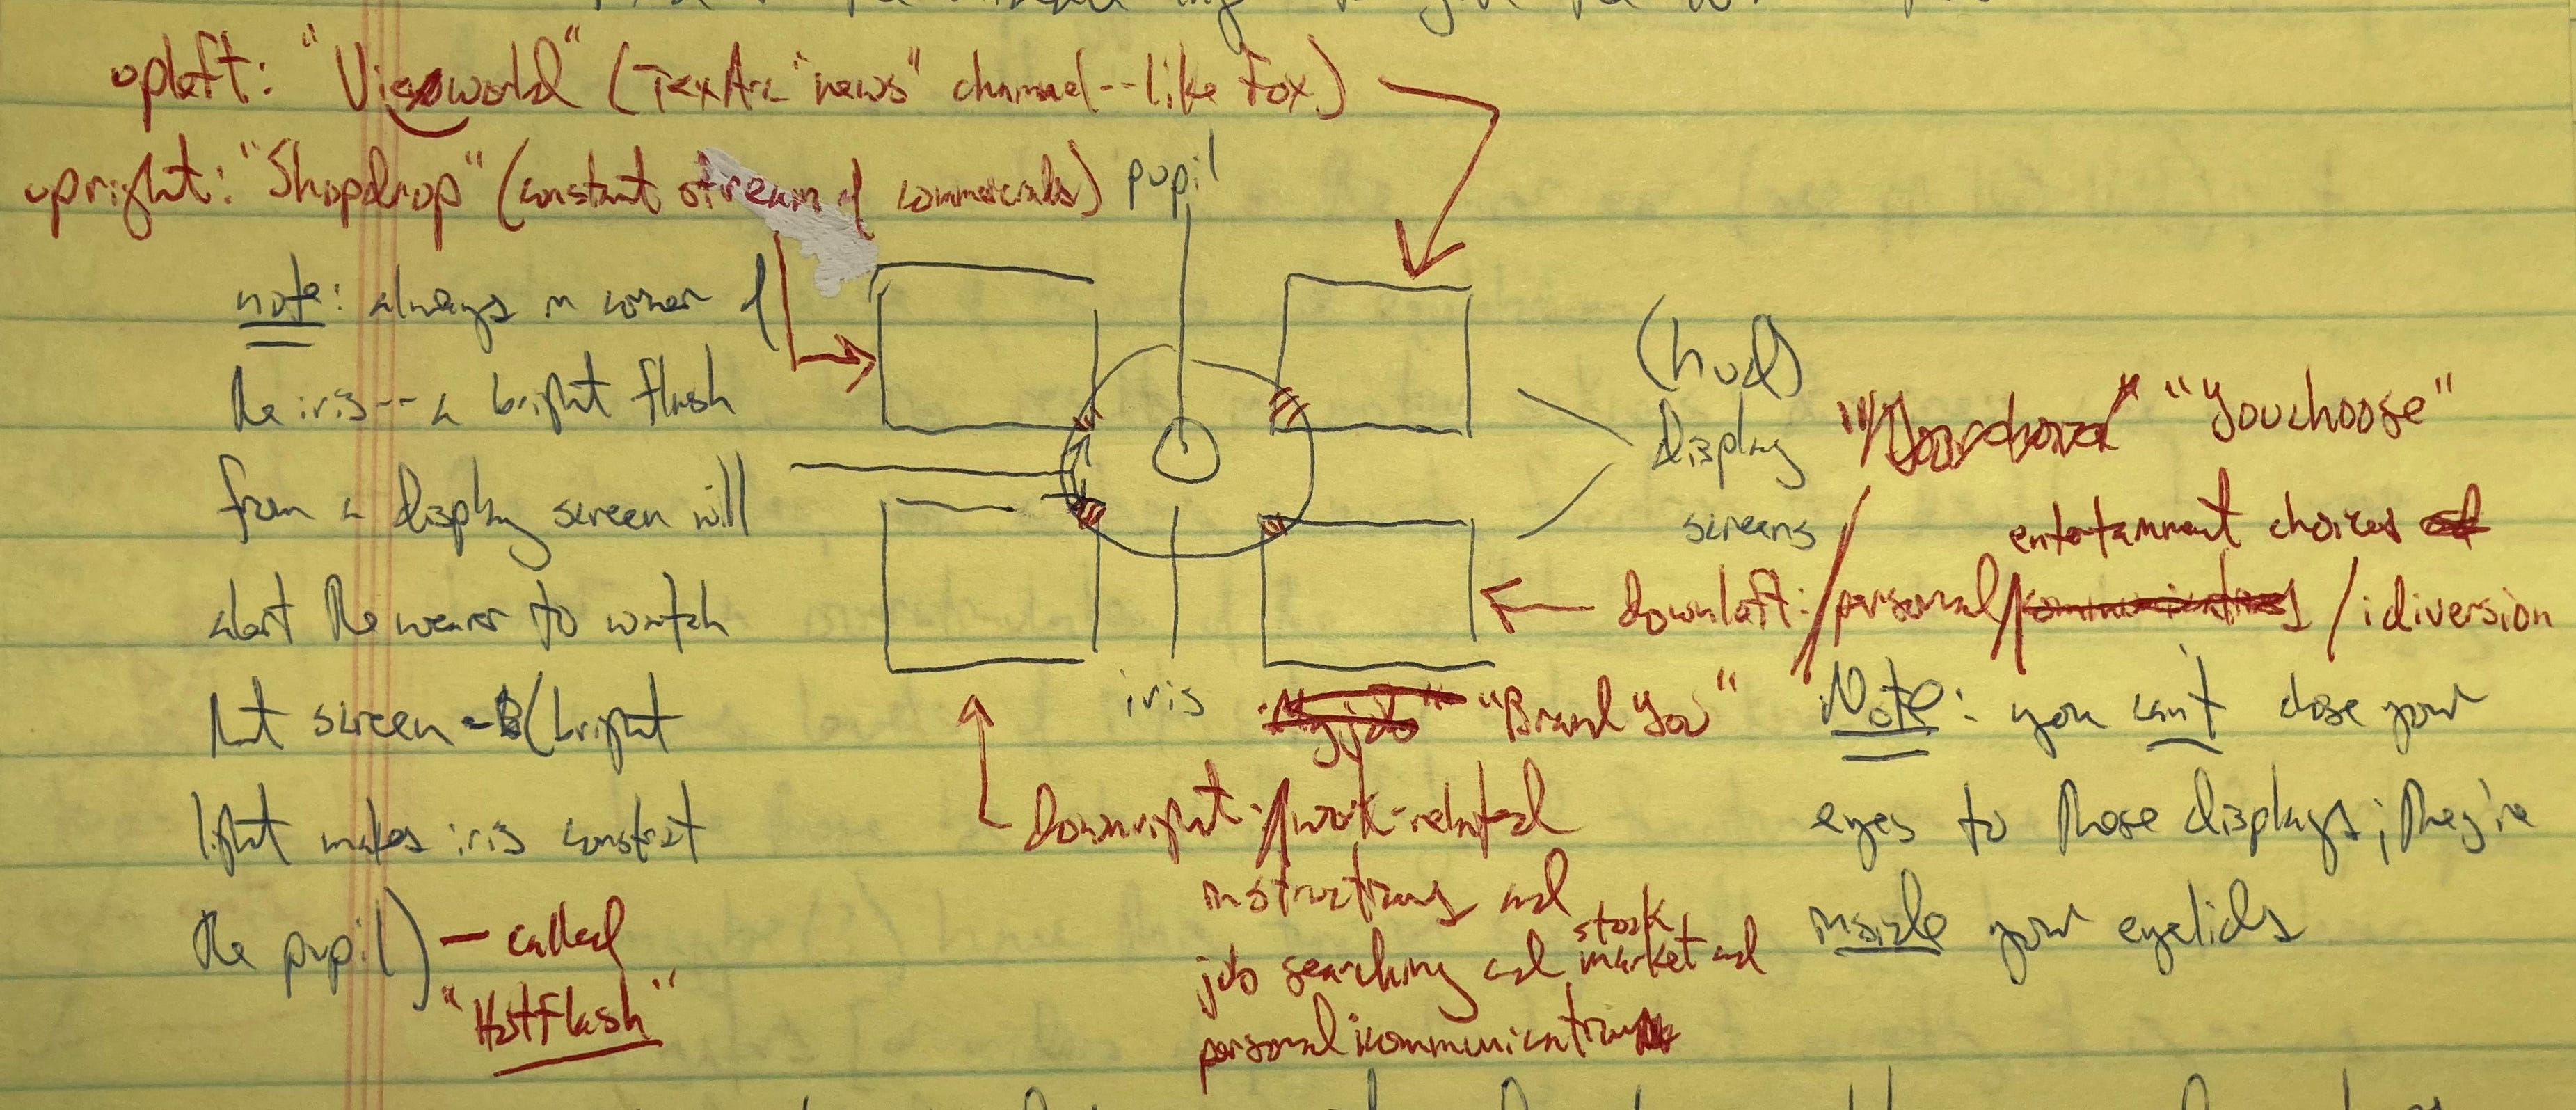 upleft: "Viewworld" (TexArc "news" channel--like Fox)
upright: "Shopdrop" (constant stream of commercials)
pupil
note: always in corner of
the iris--a bright flash
from a display screen will
alert the wearer to watch
that screen - (bright
light makes iris constrict
the pupil) — called
"Hotflash"
(hud)
display
screens
"Youchoose"
entertainment choices
downleft: personal / idiversion
iris
"Brand You"
Downright: work-related
instructions and
job searching and stock market and
personal ikommunication
Note: you can't close your
eyes to these displays; they're
inside your eyelids